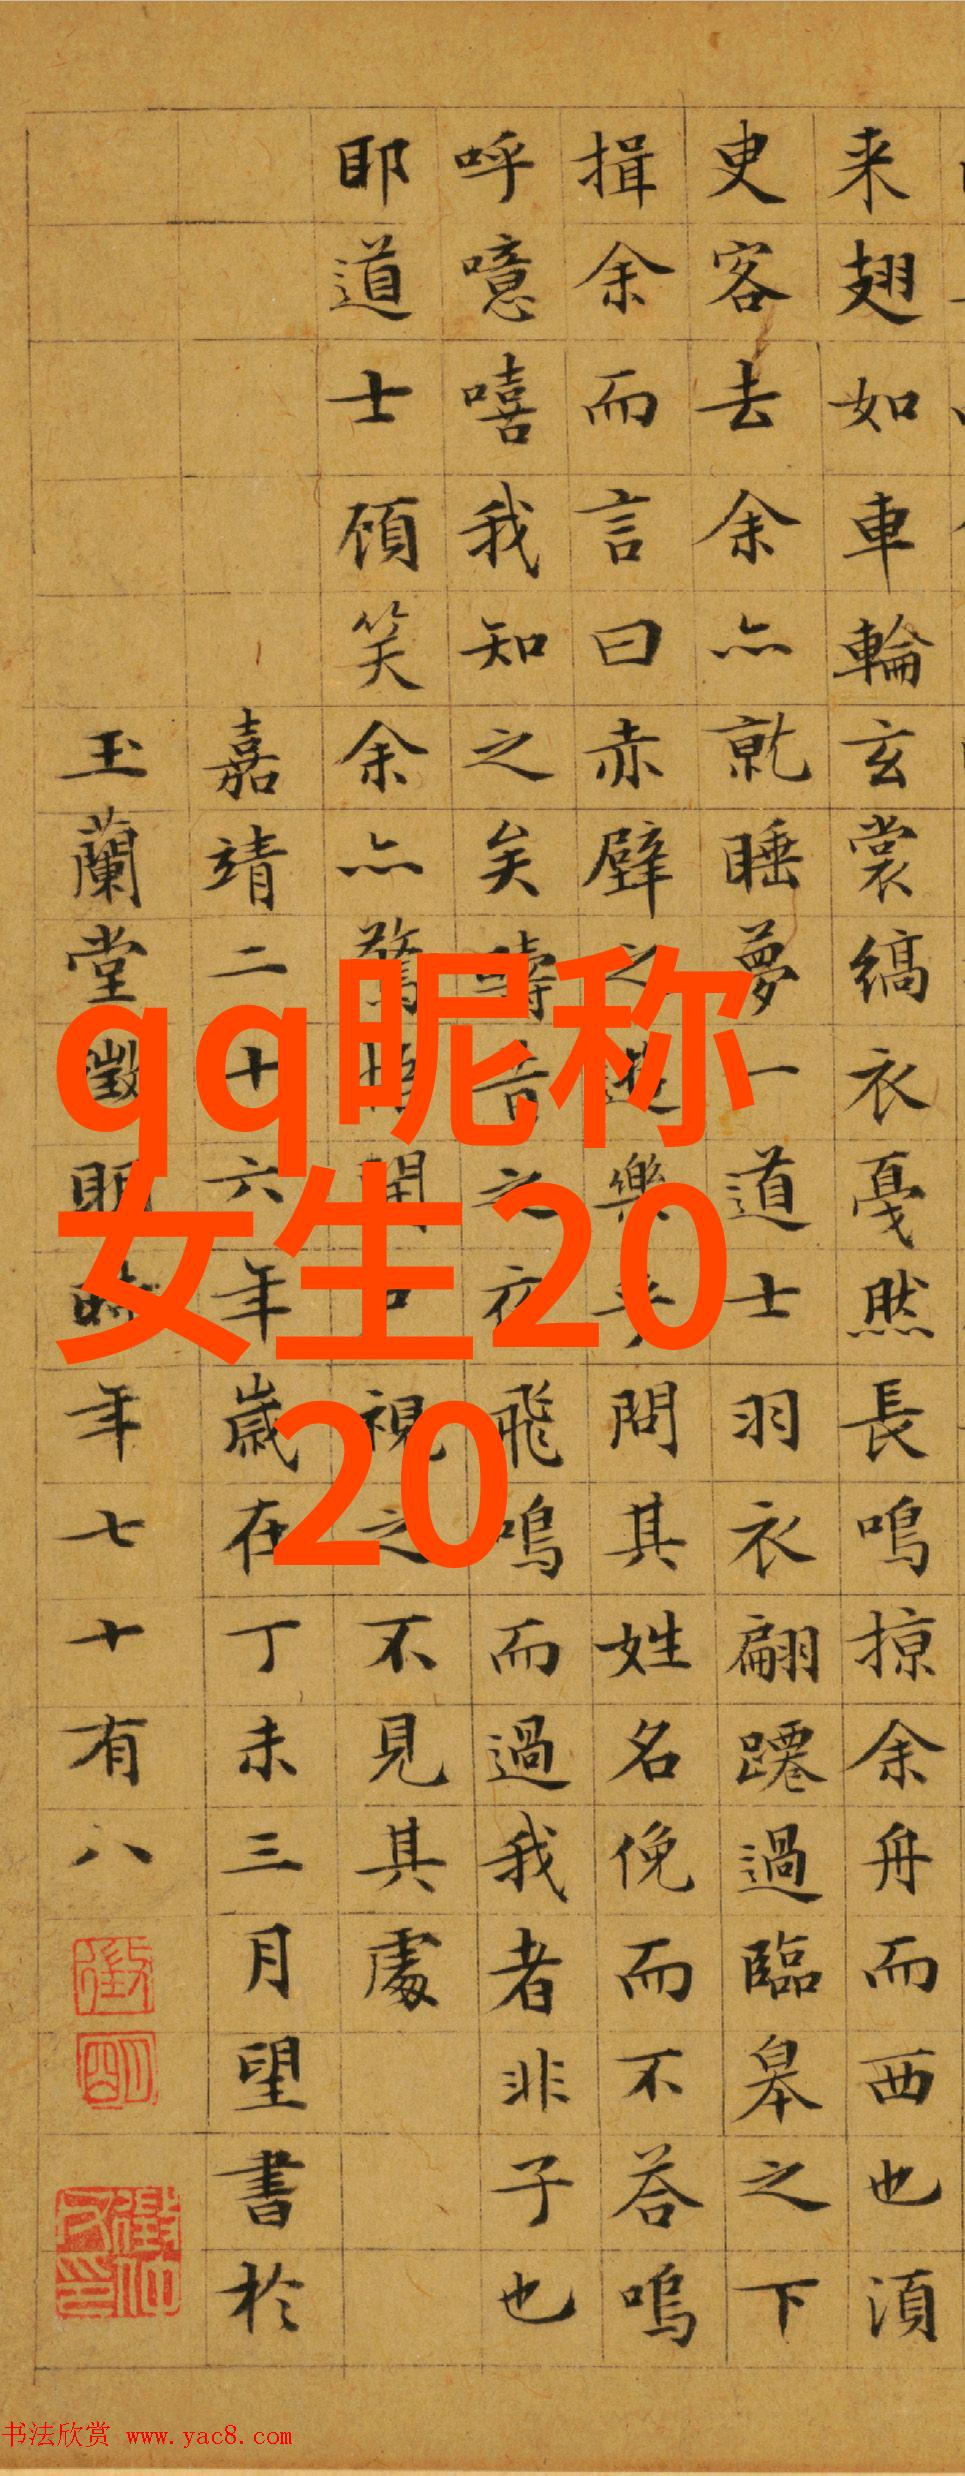 来翅如車輪玄裳縞衣戛然長鳴掠余舟而西也湏
臾客去余亦就睡夢一道士羽衣翩躚過臨皋之下
揖余而言曰赤壁之遊樂乎問其姓名俛而不荅嗚
呼噫嘻我知之矣疇昔之夜飛鳴而過我者非子也
耶道士頋笑余亦驚悟開戶視之不見其處
嘉靖二十六年歲在丁未三月望書於
玉蘭堂徵明時年七十有八
徵
明
qq昵称
女生20
20
书法欣赏 www.yac8.com